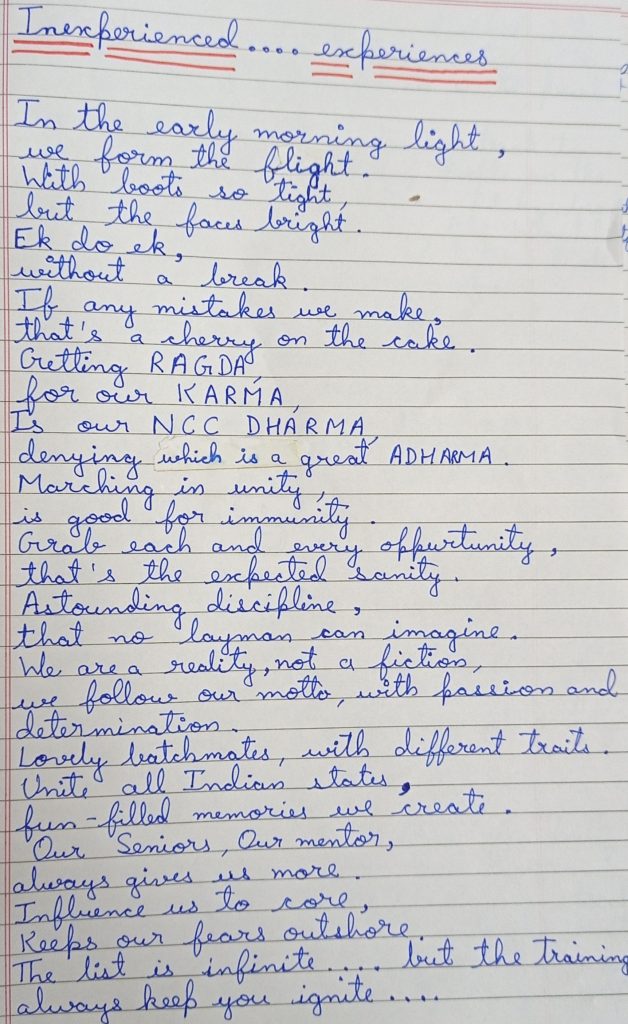 Inexperienced.... experiences
In the early morning light,
we form the flight.
With boots so tight,
but the faces bright.
Ek do ek,
without a break.
If any mistakes we make,
that's a cherry on the cake.
Getting RAGDA,
for our KARMA,
Is our NCC DHARMA,
denying which is a great ADHARMA.
Marching in unity,
is good for immunity.
Grab each and every oppurtunity,
that's the expected sanity.
Astounding discipline,
that no layman can imagine.
We are a reality, not a fiction,
we follow our motto, with passion and
determination.
Lovely batchmates, with different traits.
Unite all Indian states,
fun-filled memories we create.
Our Seniors, Our mentor,
always gives us more.
Influence us to core,
Keeps our fears outshore.
The list is infinite.... but the training
always keep you ignite....